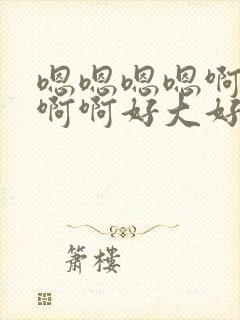 嗯嗯嗯嗯啊
啊啊好大好
箫楼